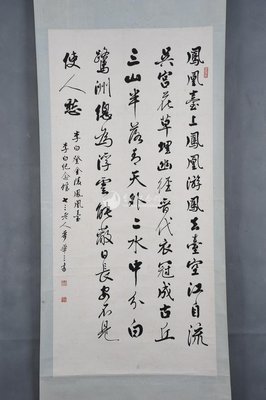 鳳凰臺上鳳凰游鳳去臺空江自流
吳宮花草埋幽徑晉代衣冠成古丘
三山半落青天外二水中分白
鷺洲總為浮雲能蔽日長安不見
使人愁
李白登金陵鳳凰臺
李白纪念馆